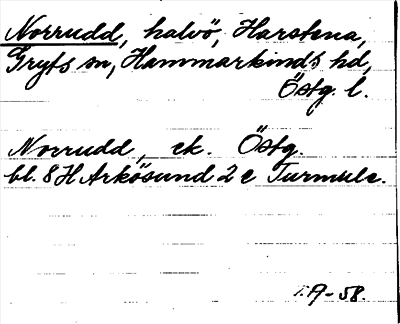 Norrudd, halvö, Harstena,
Gryts sn, Hammarkinds hd,
Östg. l.
Norrudd, ek. Östg.
bl. 8 H Arkösund 2 c Turmulc.
-58.